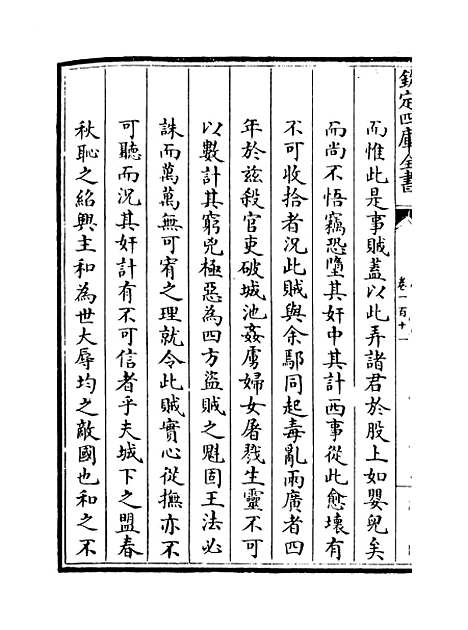 欽定四庫全書
卷一百十一
而惟此是事賊蓋以此弄諸君於股上如嬰兒矣
而尚不悟竊恐墮其奸中其計西事從此愈壞有
不可收拾者況此賊與余鄢同起毒亂兩廣者四
年於茲殺官吏破城池姦虜婦女屠戮生靈不可
以數計其窮兇極惡為四方盜賊之魁固王法必
誅而萬萬無可宥之理就令此賊實心從撫亦不
可聽而況其奸計有不可信者乎夫城下之盟春
秋恥之紹興主和為世大辱均之敵國也和之不